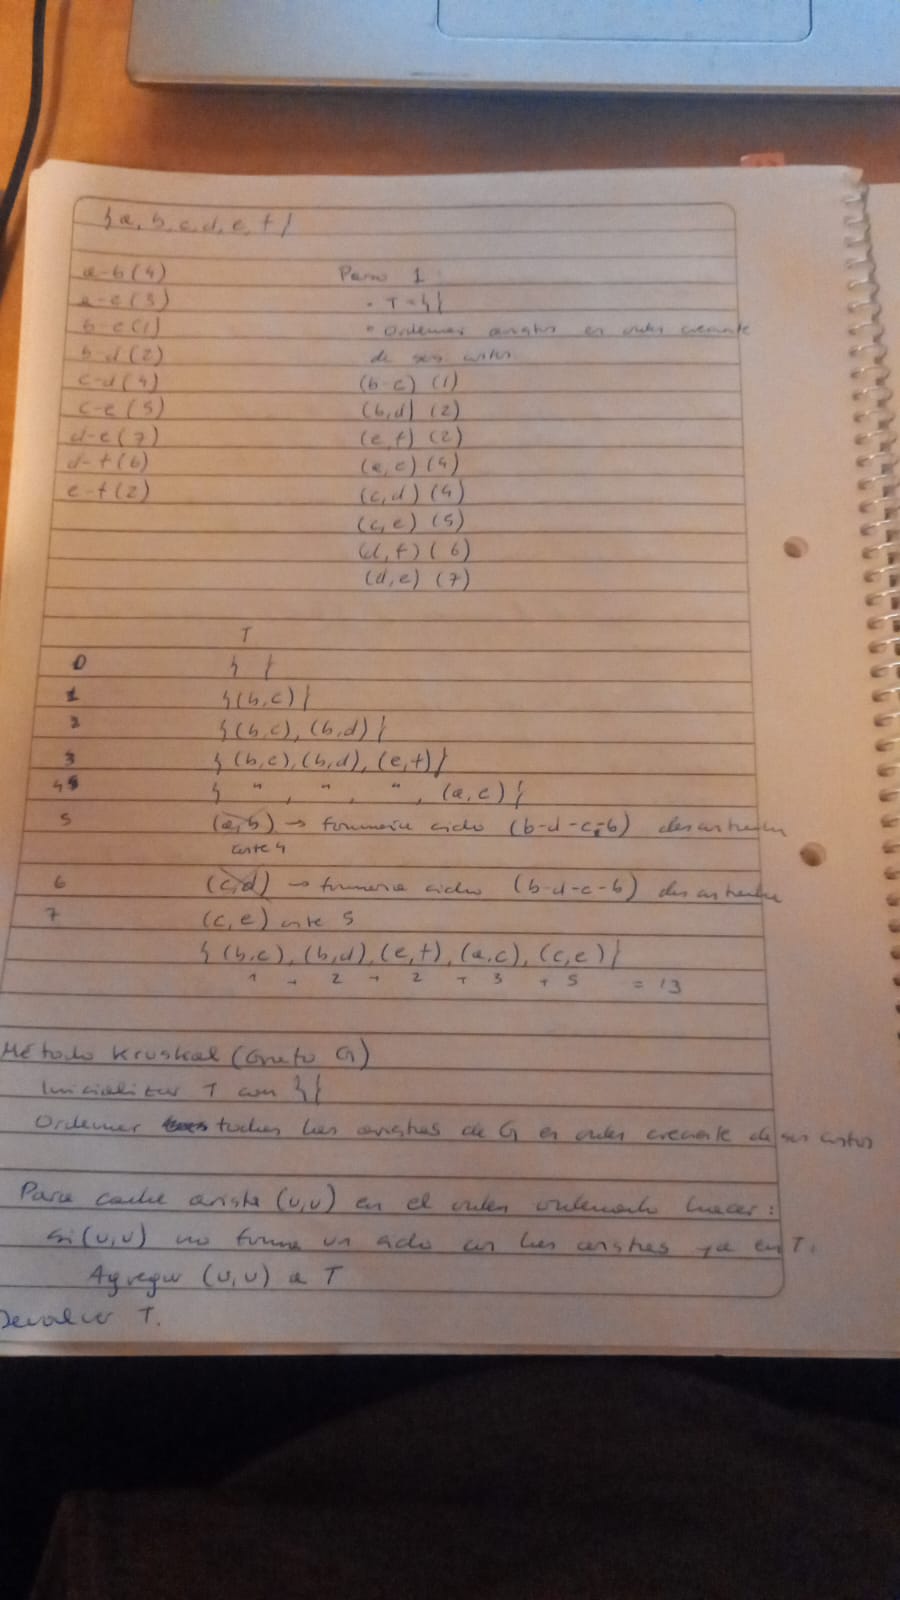 {a, b, c, d, e, f}
a-b (4)
a-c (3)
b-c (1)
b-d (2)
c-d (4)
c-e (5)
d-e (7)
d-f (6)
e-f (2)
Paso 1
• T = { }
• Ordenar aristas en orden creciente
de sus costos
(b-c) (1)
(b,d) (2)
(e,f) (2)
(a,c) (4)
(c,d) (4)
(c,e) (5)
(d,f) (6)
(d,e) (7)
T
0 { }
1 {(b,c)}
2 {(b,c), (b,d)}
3 {(b,c), (b,d), (e,f)}
4 { " , " , " , (a,c)}
5 (a,b) → formaria ciclo (b-d-c-b) descartada
coste 4
6 (c,d) → formaria ciclo (b-d-c-b) descartada
7 (c,e) coste 5
{(b,c), (b,d), (e,f), (a,c), (c,e)}
1 + 2 + 2 + 3 + 5 = 13
Método Kruskal (Grafo G)
Inicializar T con { }
Ordenar todas las aristas de G en orden creciente de sus costos
Para cada arista (u,v) en el orden ordenado hacer:
si (u,v) no forma un ciclo con las aristas ya en T.
Agregar (u,v) a T
Devolver T.